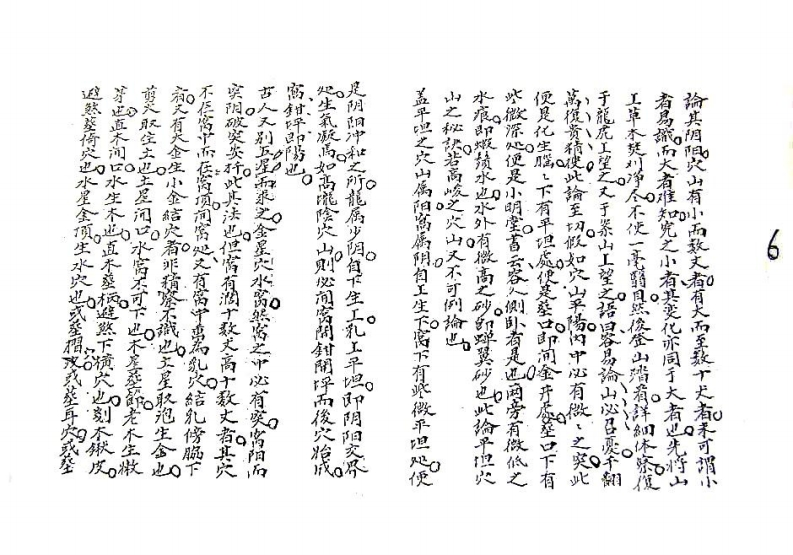 論其阴阳穴山有小而数丈者有大而至数十丈者未可謂小
者易識而大者难知究之小者其变化亦同于大者也先将山
上草木焚刈净尽不使一毫翳自然後登山踏看詳細体察復
于龍虎上望之又于案山上望之語曰容易論山必召憂千翻
萬復貴精使此論至切假如穴山平陽内中必有微微之突此
便是化生腦腦下有平坦处便是葬口即间金井处葬口下有
些微深处便是小明堂書云容人側卧者是也两旁有微低之
水痕即蝦鬚水也水外有微高之砂即蝉翼砂也此論平坦穴
山之秘訣若高峻之穴山又不可例論也
盖平坦之穴山属阳窩属阴自上生下窩下有些微平坦处便
是阴阳冲和之所龍属少阴自下生上乳上平坦即阴阳交界
处生氣凝焉如高壠陰穴山则必间窩開鉗開坪而後穴始成
窩鉗坪即陽也
古人又別五星而求之金星穴水窩然窩之中必有突窩阳而
突阴破突安扦此其法也但窩有濶十数丈高十数丈者其穴
不在窩中而在窩頂间窩处又有窩中垂為乳穴結乳傍脇下
者又有大金生小金結穴者非精察不識也土星取泡生金也
剪火取生土也土星间口水窩不可下也木星葬節老木生嫩
芽也直木间口水生木也直木葬柄避煞下横穴也刻木鍬皮
避煞葬倚穴也水星金頂生水穴也或葬摺或葬耳穴或葬